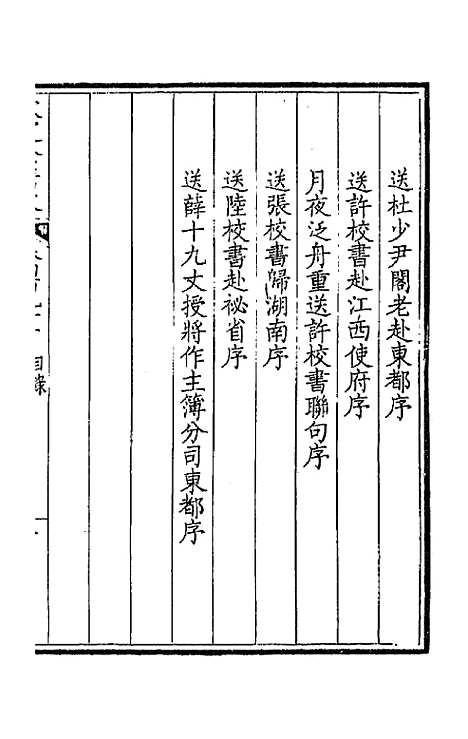 送杜少尹閣老赴東都序
送許校書赴江西使府序
月夜泛舟重送許校書聯句序
送張校書歸湖南序
送陸校書赴祕省序
送薛十九丈授將作主簿分司東都序
目錄